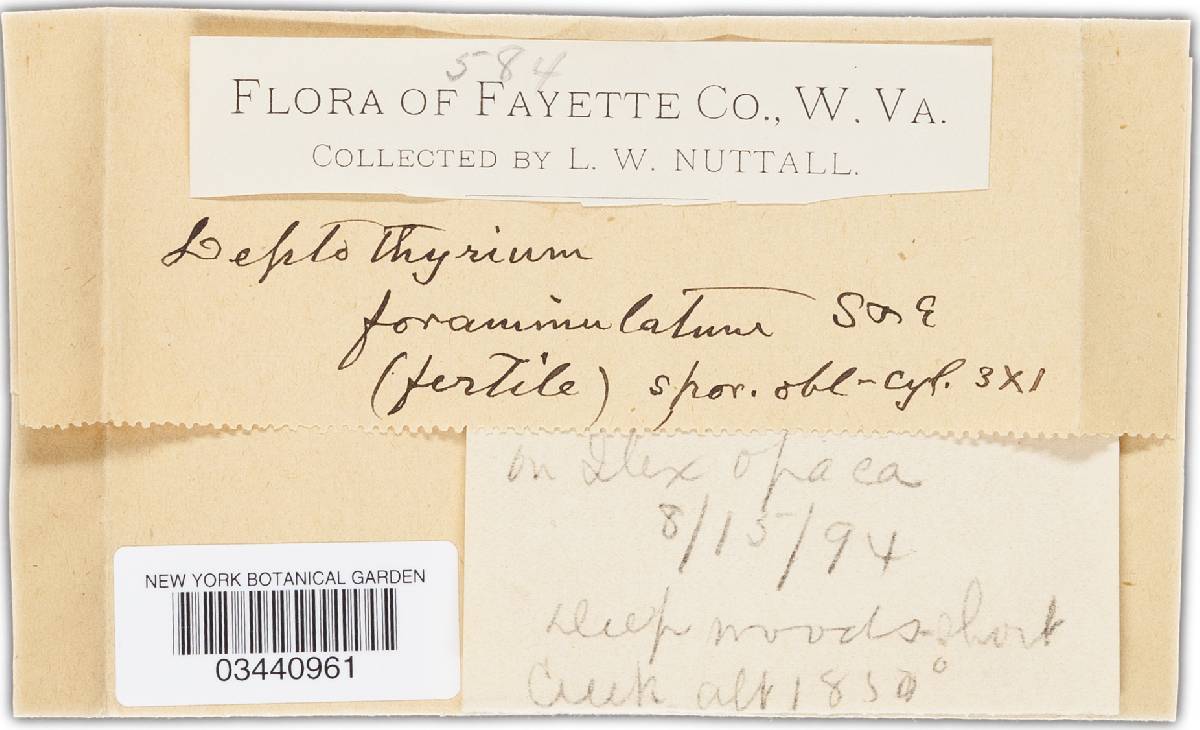 584
FLORA OF FAYETTE CO., W. VA.
COLLECTED BY L. W. NUTTALL.
Leptothyrium
foraminulatum S & E
(fertile) spor. obl-cyl. 3X1
on Ilex opaca
8/15/94
Deep woods short
Creek alt 1850°
NEW YORK BOTANICAL GARDEN
03440961